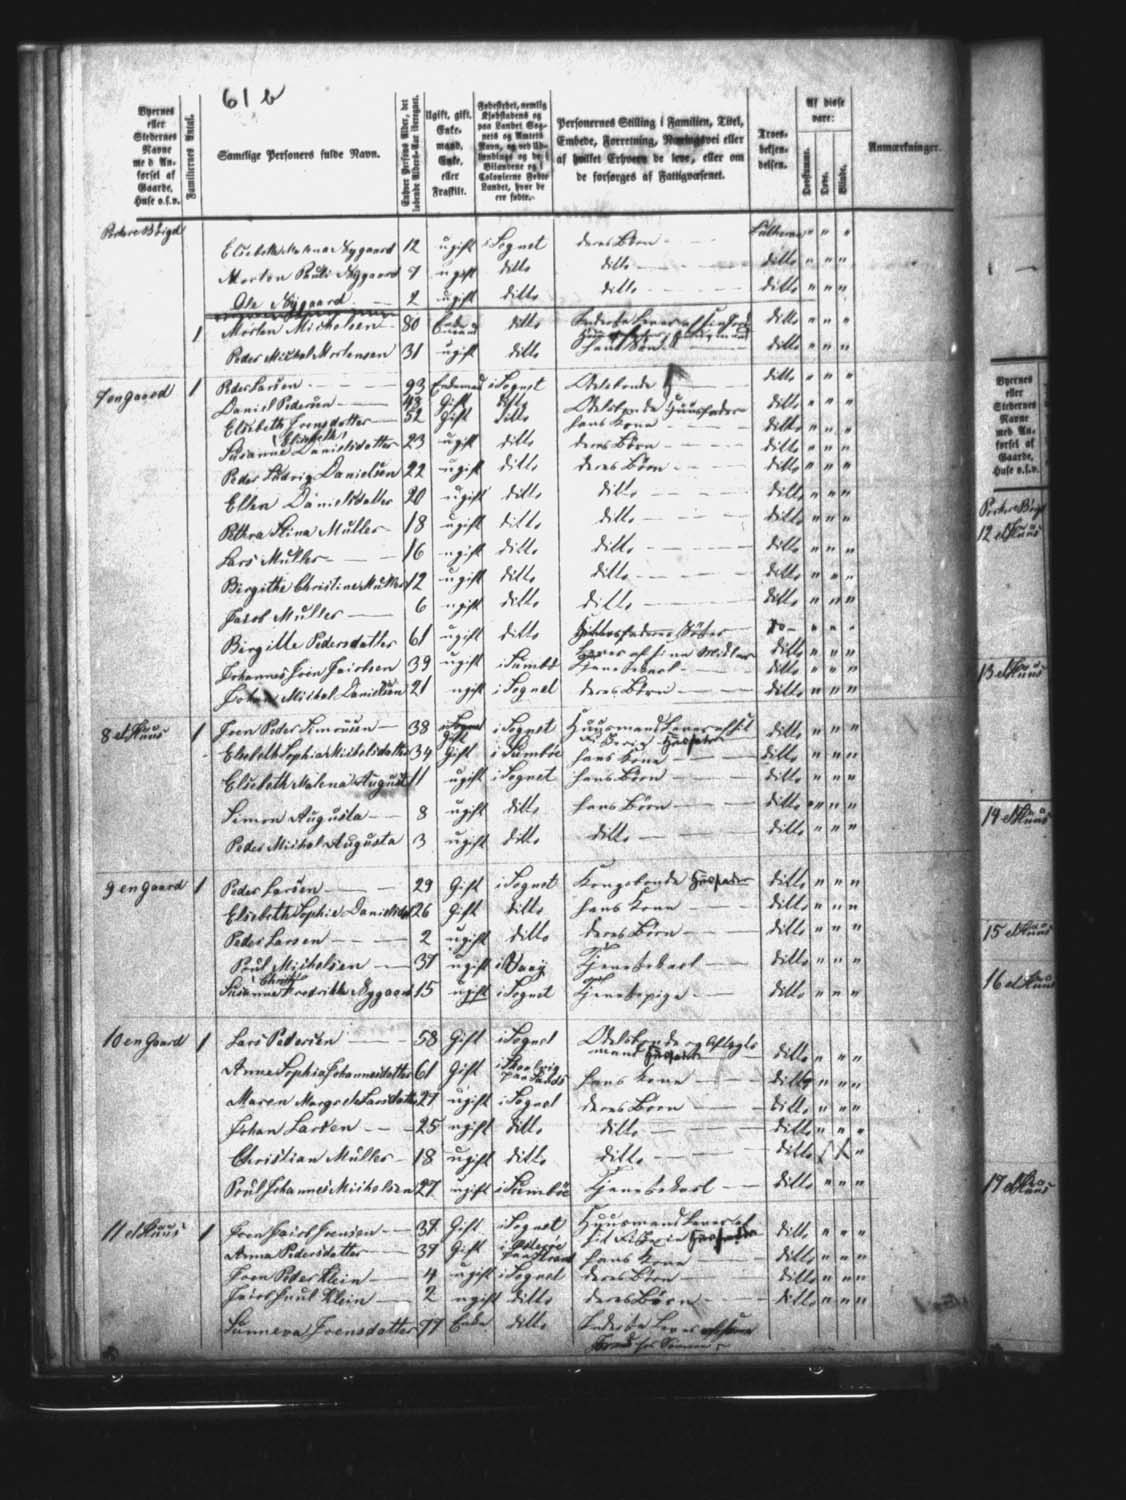 61 b
Byernes eller Stedernes Navne med Anførsel af Gaarde, Huse o.s.v. | Familiernes Antal. | Samtlige Personers fulde Navn. | Enhver Persons Alder, det løbende Alders-Aar iberegnet. | Ugift, gift. Enkemand, Enke, eller Fraskilt. | Fødestedet, nemlig Kjøbstadens og paa Landet Sognets og Amtets Navn, | Personernes Stilling i Familien, Titel, Embede, Forretning, Næringsvei eller af hvilket Erhverv de leve, eller om de forsørges af Fattigvæsenet. | Troesbekjendelsen. | Af disse vare: Døvstumme. Døve. Blinde. | Anmærkninger.
Porkere Bÿgd
Elsebeth Malena Nygaard 12 ugift i Sognet deres Børn Lutheran " " "
Morten Pauli Nygaard 7 ugift ditto ditto ditto " " "
Ole Nygaard 2 ugift ditto ditto ditto " " "
1 Morten Michelsen 80 Enkemand ditto ditto " " "
Peder Michel Mortensen 31 ugift ditto hans Søn ditto " " "
7 en gaard 1 Peder Larsen 93 Enkemand i Sognet Odelsbonde ditto " " "
Daniel Pedersen 48 Gift ditto Odelsbonde Huusfader ditto " " "
Elsebeth Joensdatter 52 Gift ditto hans Kone ditto " " "
Susanne Elisabeth Danielsdatter 23 ugift ditto deres Børn ditto " " "
Peder Ludvig Danielsen 22 ugift ditto deres Børn ditto " " "
Ellen Danielsdatter 20 ugift ditto ditto ditto " " "
Petra Stina Müller 18 ugift ditto ditto ditto " " "
Lars Müller 16 ugift ditto ditto ditto " " "
Birgithe Christine Müller 12 ugift ditto ditto ditto " " "
Jacob Müller 6 ugift ditto ditto ditto " " "
Birgitte Pedersdatter 61 ugift ditto Søster Do " " "
Johannes Joen Jacobsen 39 ugift i Sumbø Tjenestekarl ditto " " "
Michel Danielsen 21 ugift i Sognet deres Børn ditto " " "
8 et Huus 1 Joen Peder Simonsen 38 Gift i Sognet Huusmand Lever af sit Fiskerie Husfader ditto " " "
Elsebeth Sophia Michelsdatter 34 Gift i Sumbøe hans Kone ditto " " "
Elsebeth Malena Augusta 11 ugift i Sognet hans Børn ditto " " "
Simon Augusta 8 ugift ditto hans Børn ditto " " "
Peder Michel Augusta 3 ugift ditto ditto ditto " " "
9 en gaard 1 Peder Larsen 29 Gift i Sognet Kongsbonde Husfader ditto " " "
Elsebeth Sophie Danielsdat 26 Gift ditto hans Kone ditto " " "
Peder Larsen 2 ugift ditto deres Børn ditto " " "
Poul Michelsen 37 ugift i Vaag Tjenestekarl ditto " " "
Susanne Fredrikke Nygaard 15 ugift i Sognet Tjenestepige ditto " " "
10 en Gaard 1 Lars Pedersen 58 Gift i Sognet Odelsbonde og Aftægtsmand Husfader ditto " " "
Anne Sophia Johannesdatter 61 Gift paa Sandø hans Kone ditto " " "
Maren Margrete Larsdatter 27 ugift i Sognet deres Børn ditto " " "
Johan Larsen 25 ugift ditto ditto ditto " " "
Christian Müller 18 ugift ditto ditto ditto
Poul Johannes Michelsen 27 ugift i Sumbøe Tjenestekarl ditto " " "
11 et Huus 1 Joen Jacob Joensen 37 Gift i Sognet Huusmand Lever af sit Fiskerie Husfader ditto " " "
Anna Pedersdatter 39 Gift hans Kone ditto " " "
Joen Peder Klein 4 ugift i Sognet deres Børn ditto " " "
Jacob Juul Klein 2 ugift ditto deres Børn ditto " " "
Sunneva Joensdatter 77 Enke ditto
Byernes eller Stedernes Navne med Anførsel af Gaarde, Huse o.s.v.
Porkere Bÿgd
12 et Huus
13 et Huus
14 et Huus
15 et Huus
16 et Huus
17 et Huus